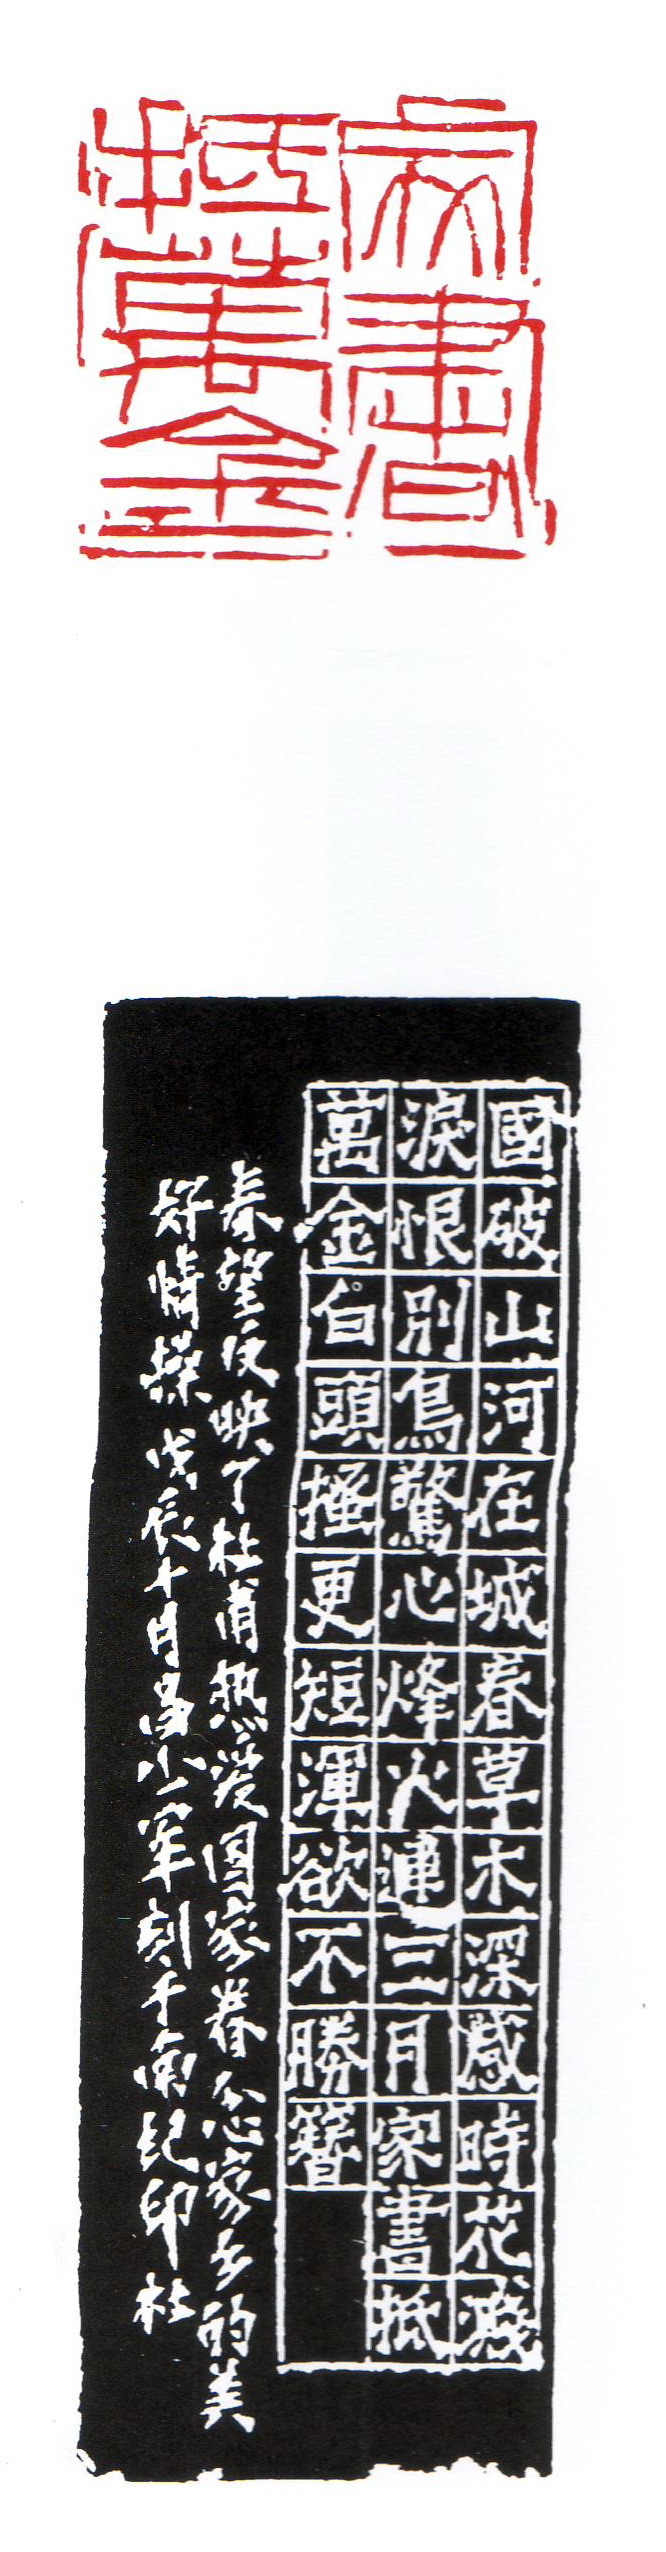 家書
抵萬金
國破山河在城春草木深感時花濺
淚恨別鳥驚心烽火連三月家書抵
萬金白頭搔更短渾欲不勝簪
春望反映了杜甫热爱国家眷念家乡的美
好情操戊辰十月少军刻于南纪印社